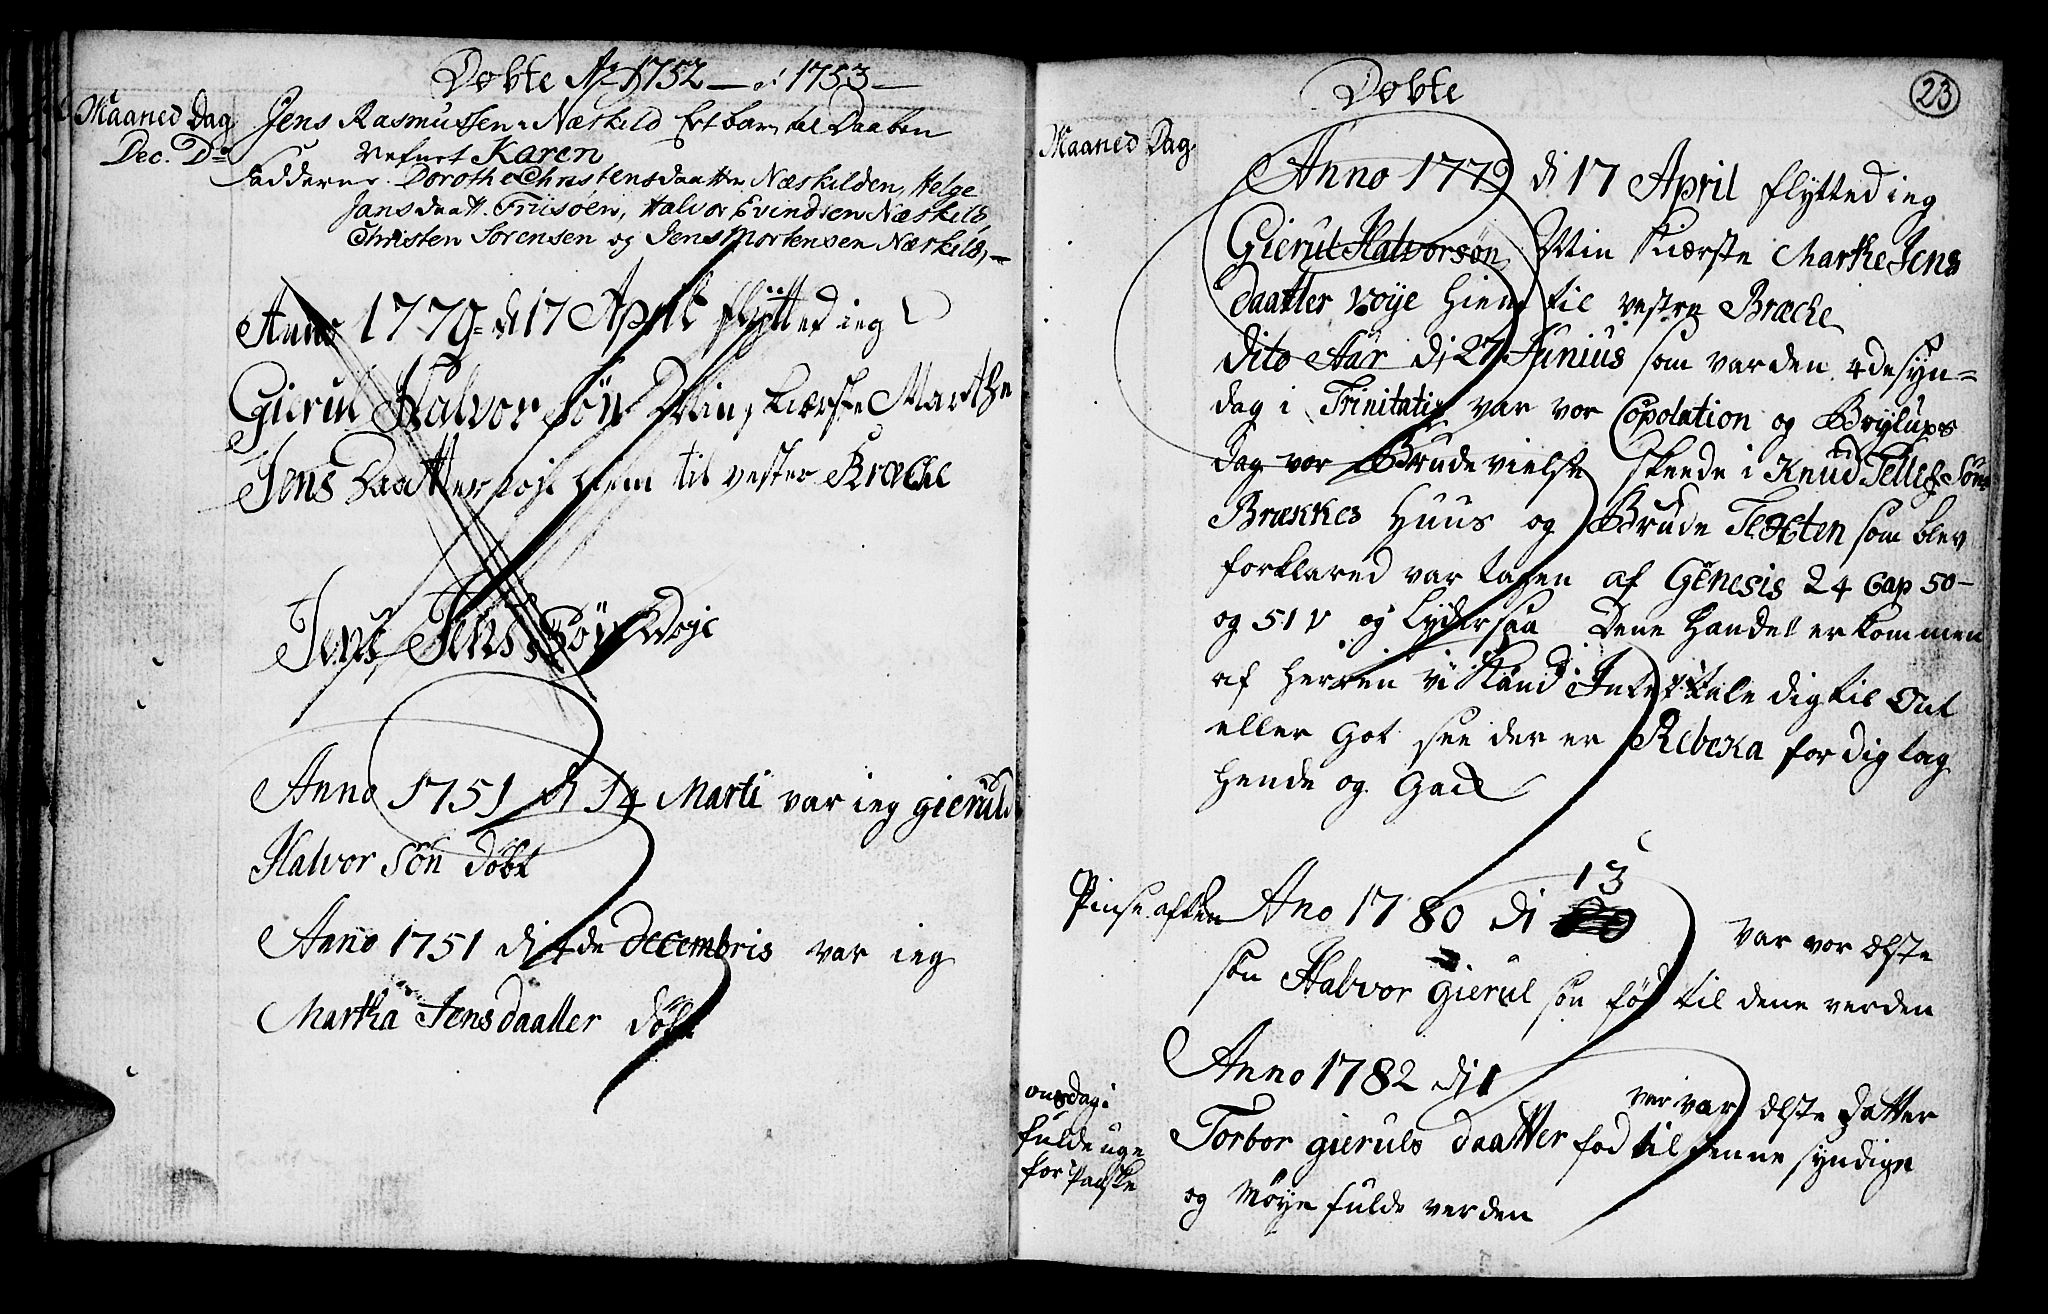 Døbte Ao 1752 — 1753 —
Maaned Dag
Dec. Do
Jens Rasmussen Næskild Et barn til Daaben
Nefnt Karen
Faddere. Dorothe Christensdaatter Næskilden, Helge
Jansdaatt. Friisøen, Halvor Evindsen Næskild,
Christen Sørensen og Jens Mortensen Næskild, —
Anno 1779 d 17 April flÿtted ieg
Gierul Halvor Søn Min Kiærste Marthe
Jens Daatter Voje hiem til vester Bræcke
Jens Jens Søn Woje
Anno 1751 d 14 Marti var ieg gieruld
Halvor Søn døbt
Anno 1751 di 4de decembris var ieg
Martha Jensdaatter døbt
Døbte
23
Maaned Dag
Anno 1779 di 17 April flytted ieg
Gierul Halvorsøn Min Kiærste Marthe Jens
daatter voje hiem til vestre Bræche
dito Aar di 27 Junius som var den 4de syn=
dag i Trinitatis var vor Copolation og Brylups
dag vor Brudevielse skeede i Knud Tellefsøn
Brækkes Huus og Brude Texten som blev
forklared var tagen af Genesis 24 Cap 50 —
og 51 v og lyder saa Dene handel er kommen
af herren vi kand Intet tale dig til Ont
eller Got see der er Rebeka for dig tag
hende og Gack
Pinse aften Ano 1780 di 13
var vor ælste
søn Halvor gierul søn fød til dene verden
Anno 1782 di 1
onsdag i
fulde uge
for Paaske
var vor ælste datter
Torbor gieruls daatter fød til denne syndige
og Møye fulde verden